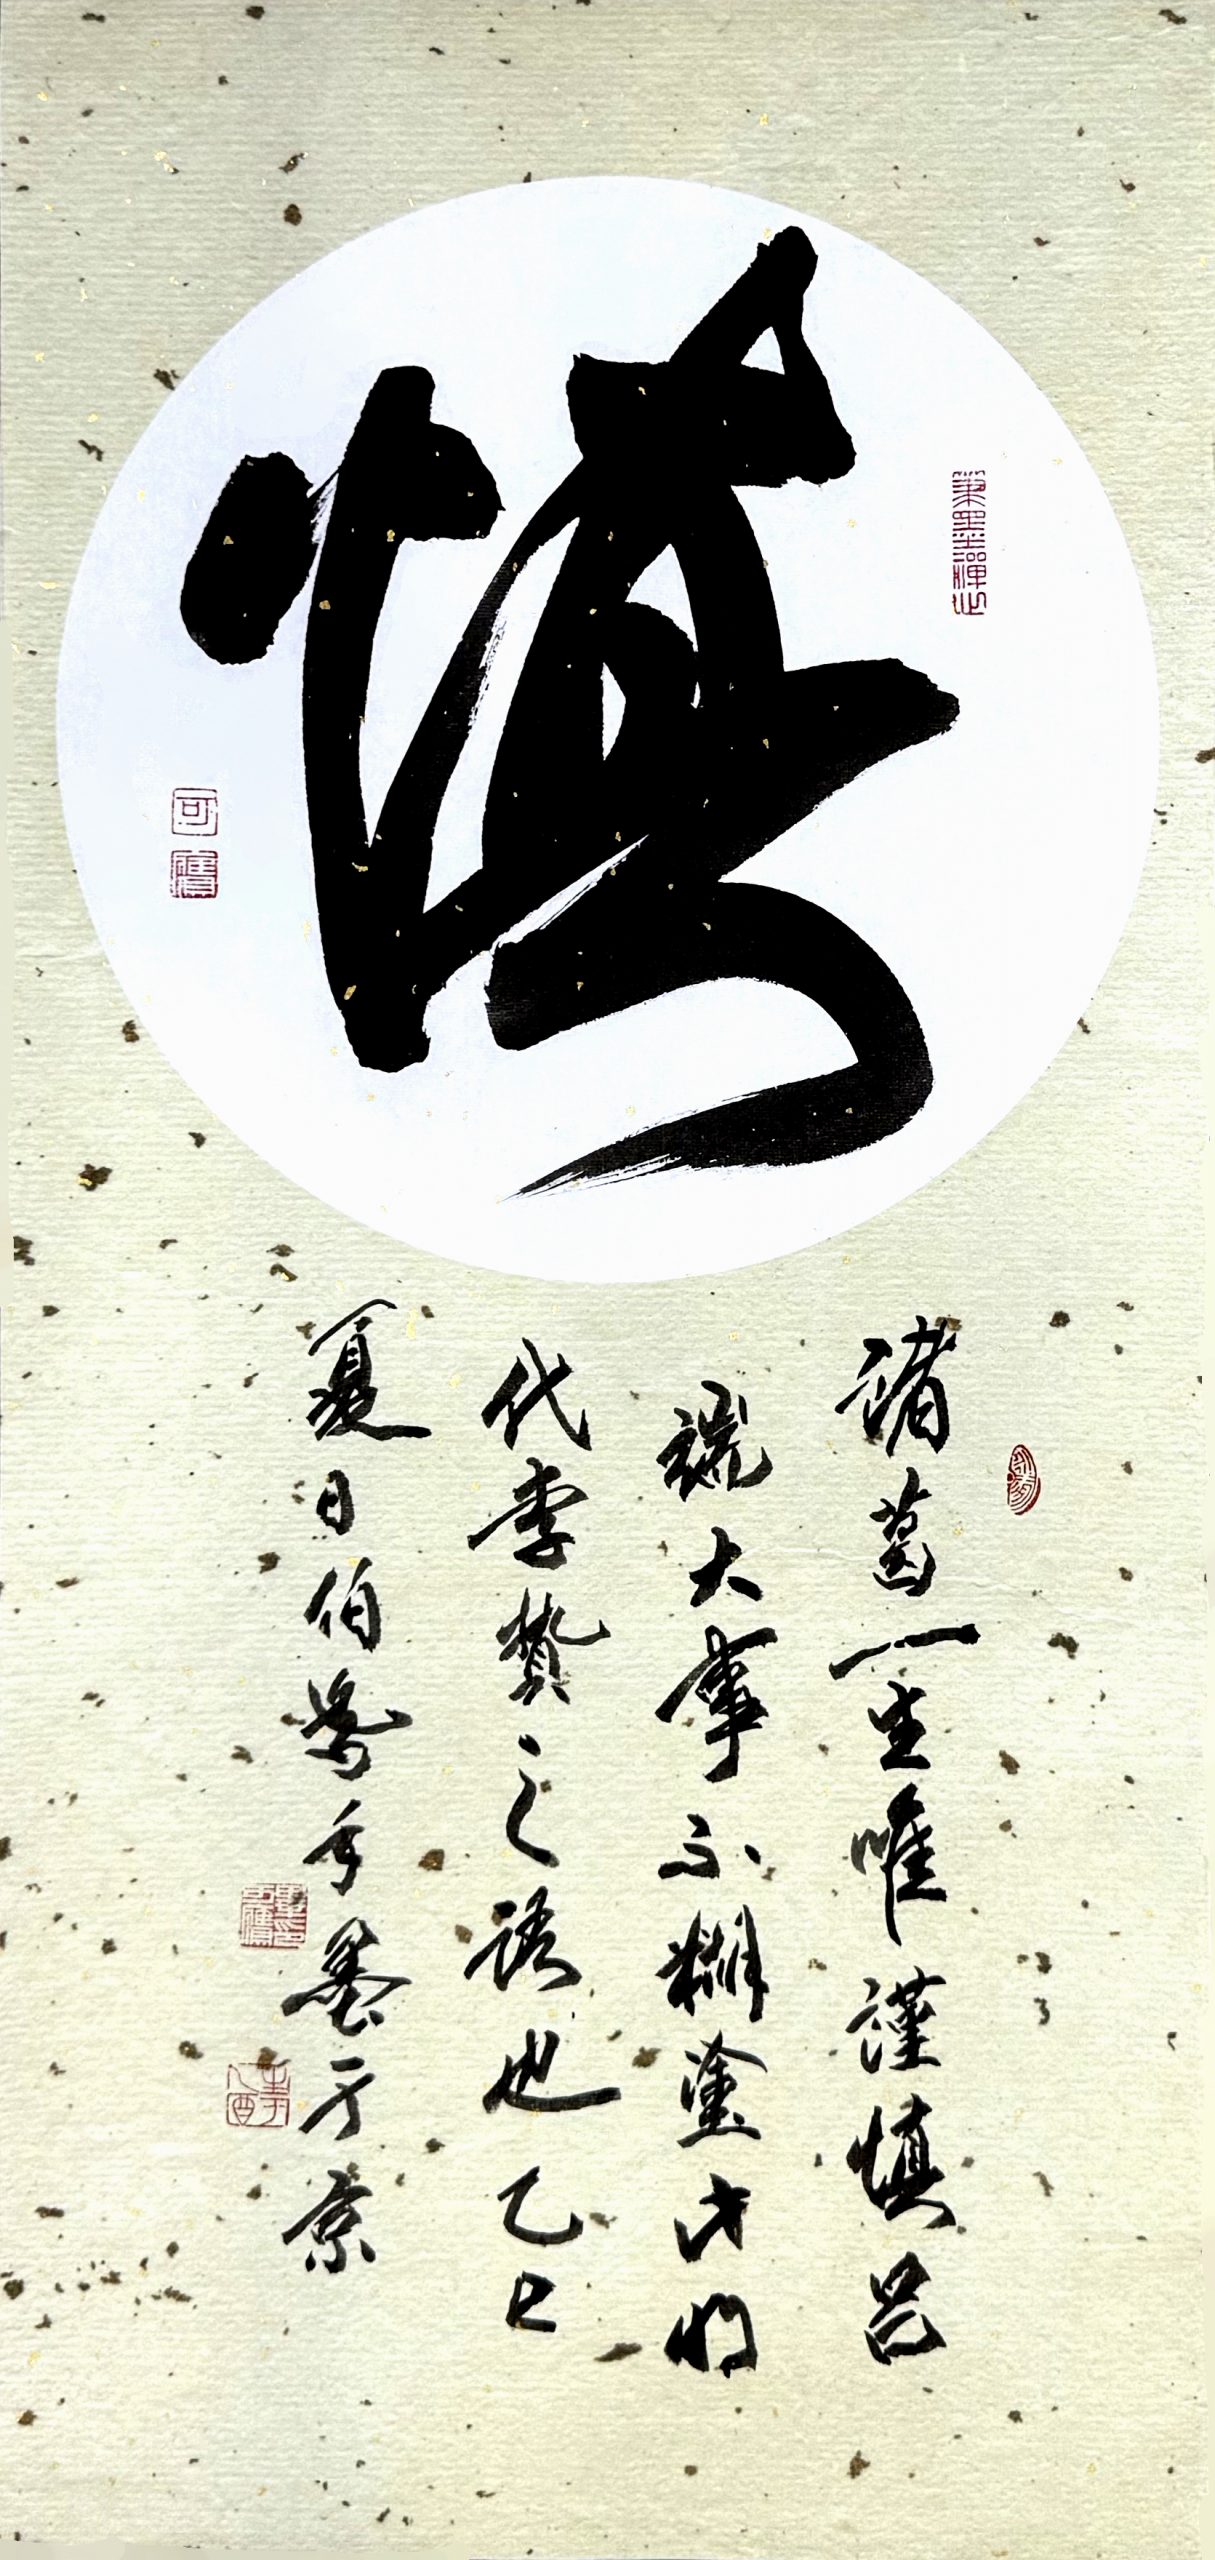 慎
諸葛一生唯謹慎呂
端大事不糊塗此明
代李贄之語也乙巳
夏日伯鷹弄墨于京
可
鷹